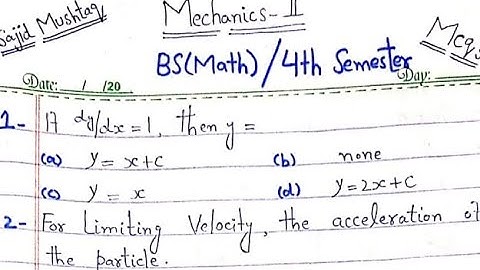 Sajid Mushtaq
Mechanics-II
Mcqs
BS(Math)/4th Semester
Date: / /20 Day:
1- If dy/dx = 1, then y =
(a) y = x+c (b) none
(c) y = x (d) y=2x+c
2- For Limiting Velocity, the acceleration of
the particle.